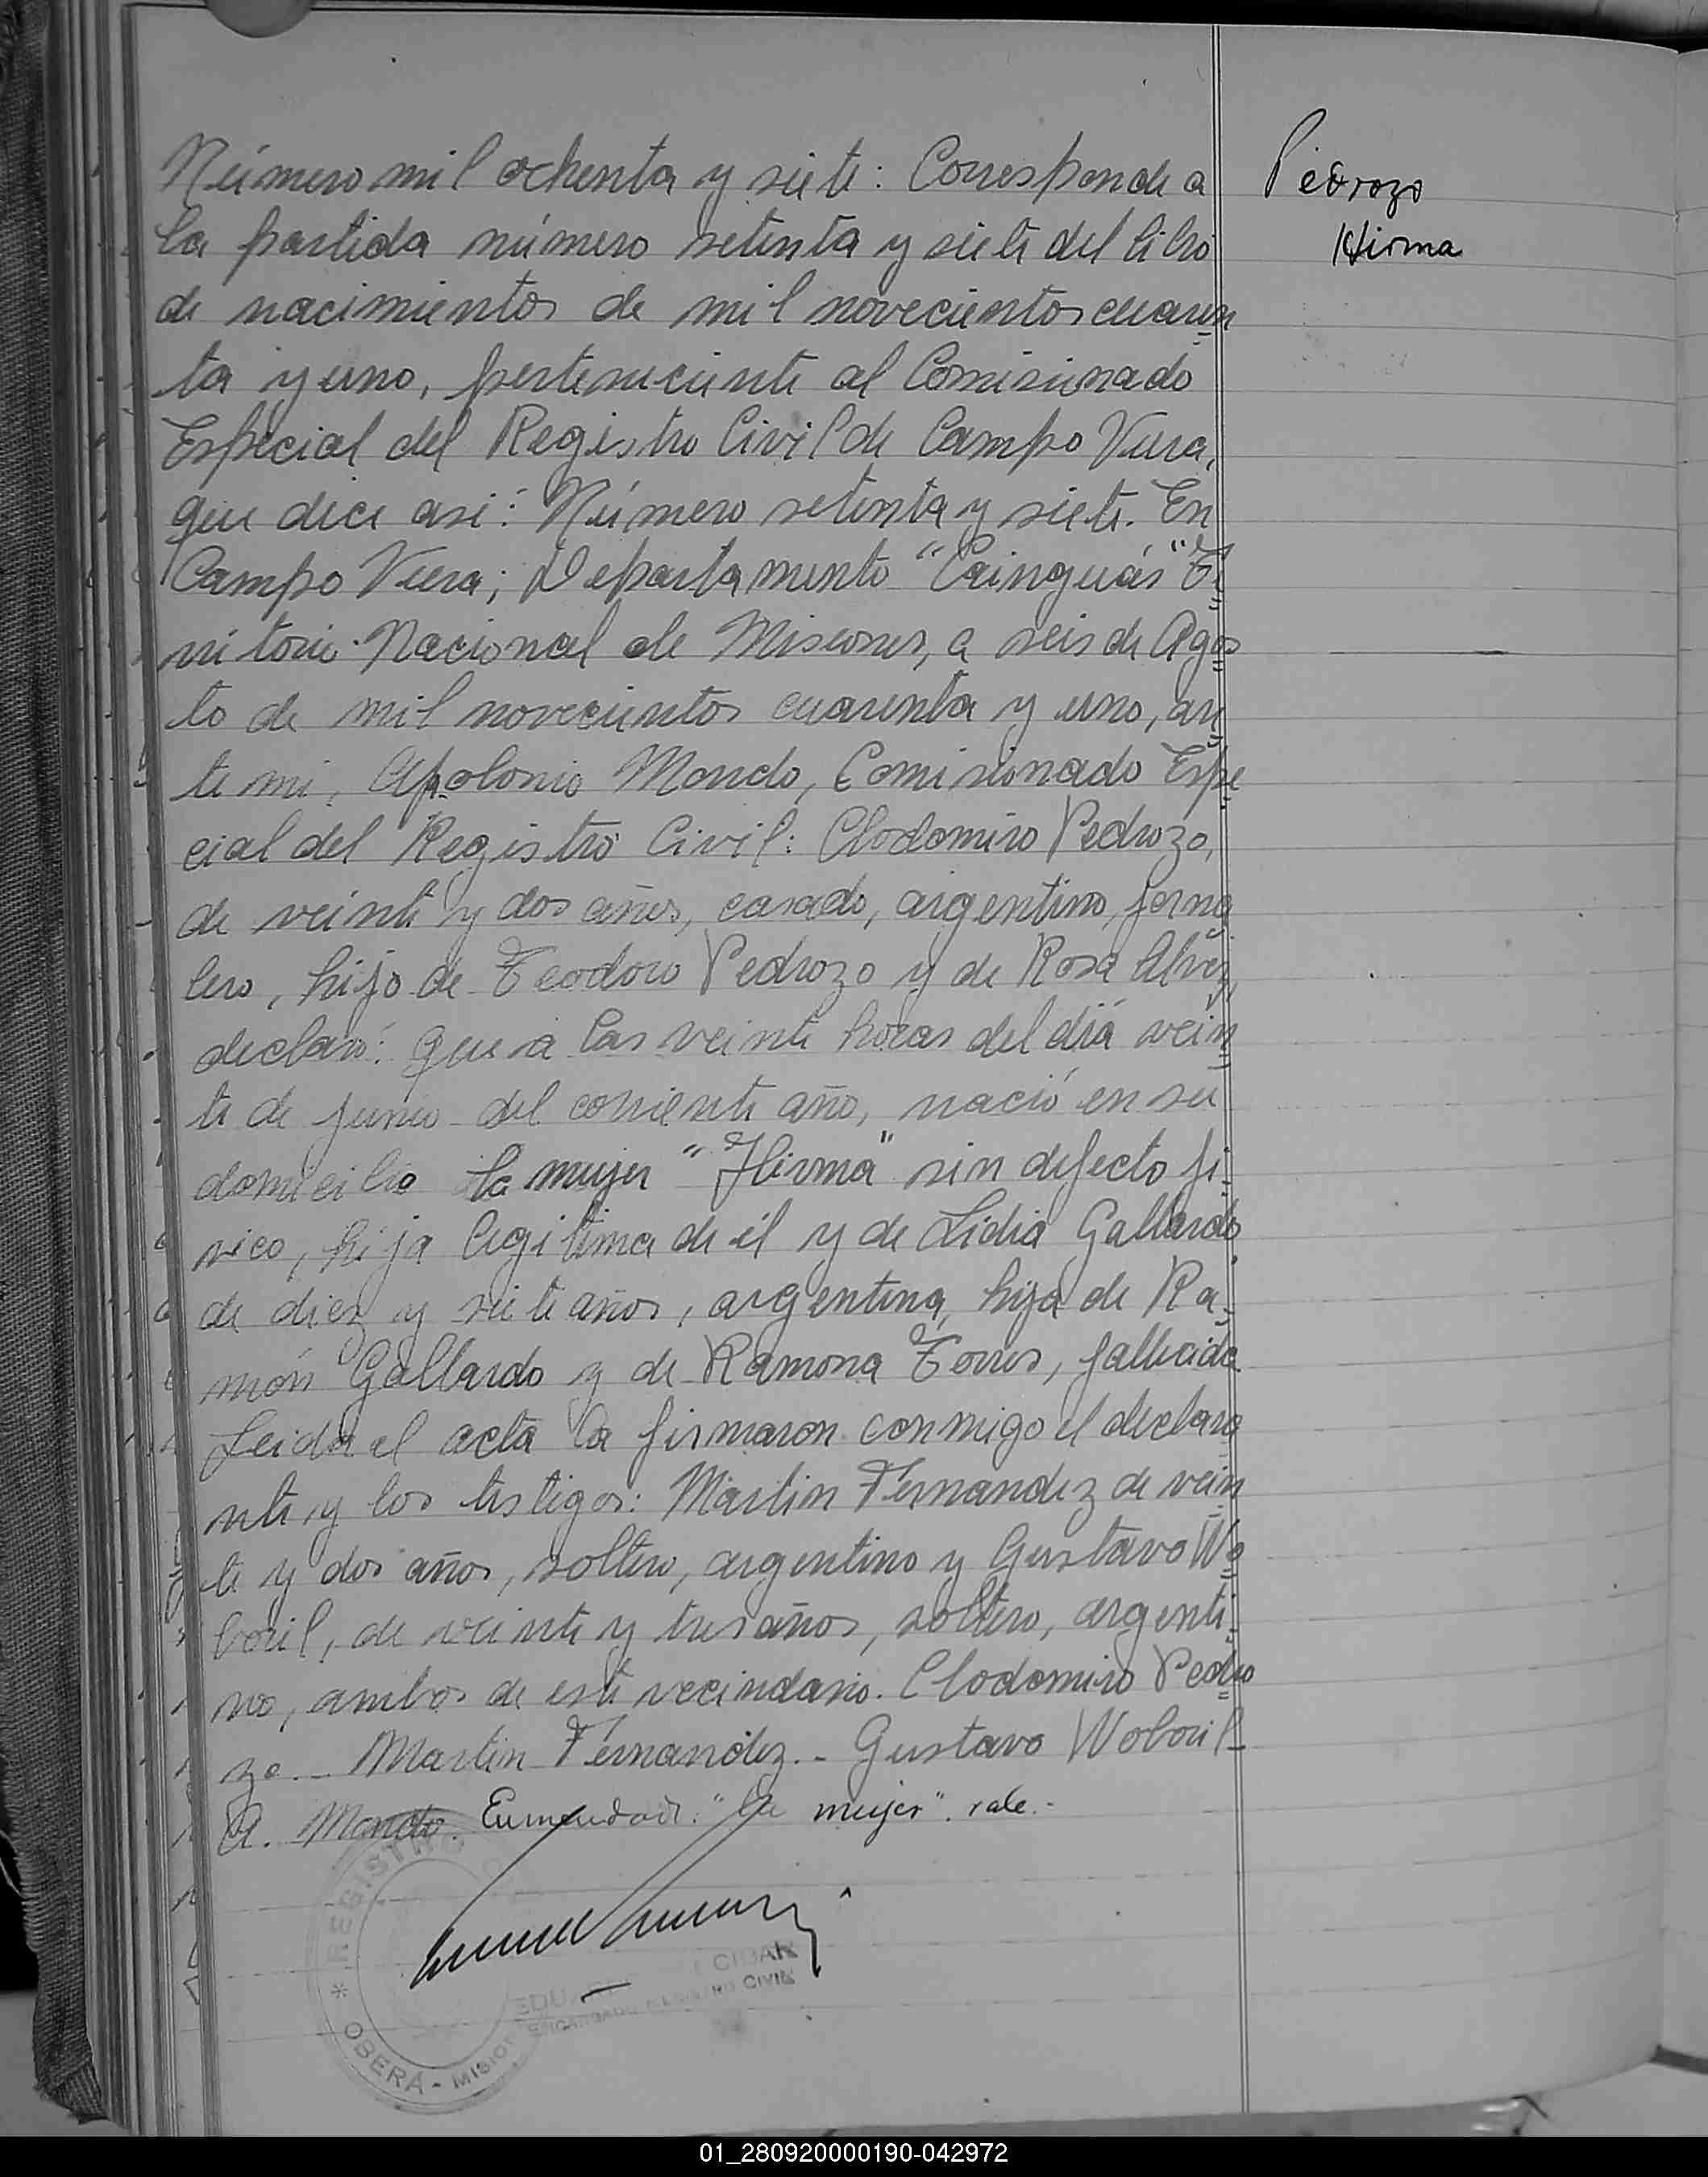 Número mil ochenta y siete: Corresponde a
la partida número setenta y siete del libro
de nacimientos de mil novecientos cuaren
ta y uno, perteneciente al Comisionado
Especial del Registro Civil de Campo Viera,
que dice asi: Número setenta y siete. En
Campo Viera; Departamento "Cainguás" Te
rritorio Nacional de Misiones, a seis de Agos
to de mil novecientos cuarenta y uno, an
te mi, Apolonio Mondo, Comisionado Espe
cial del Registro Civil: Clodomiro Pedrozo,
de veinte y dos años, casado, argentino, jorna
lero, hijo de Teodoro Pedrozo y de Rosa Alvez,
declaró: Que a las veinte horas del diá vein
te de junio del corriente año, nació en su
domicilio la mujer "Hirma" sin defecto fi-
sico, hija legitima de él y de Lidia Gallardo,
de diez y siete años, argentina, hija de Ra-
món Gallardo y de Ramona Torres, fallecida
Leida el acta la firmaron conmigo el declara
nte y los testigos: Martin Fernandez de vein
te y dos años, soltero, argentino y Gustavo Wo
boril, de veinte y tres años, soltero, argenti-
no, ambos de este vecindario. Clodomiro Pedro
zo.- Martin Fernandez.- Gustavo Woboril-
A. Mondo. Enmendado: "la mujer". vale.-
Pedrozo
Hirma
REGISTRO
OBERÁ - MISIO
REGISTRO CIVIL
01_280920000190-042972